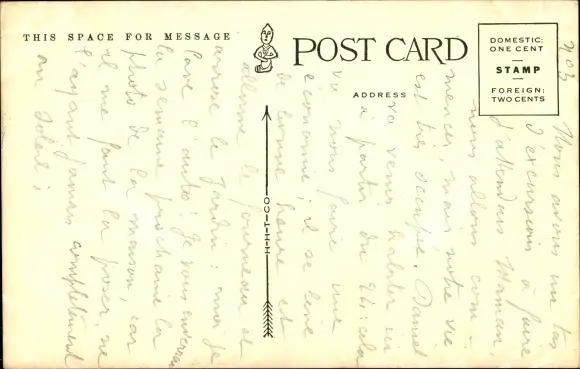 THIS SPACE FOR MESSAGE
POST CARD
ADDRESS
DOMESTIC:
ONE CENT
STAMP
FOREIGN:
TWO CENTS
H-H-T-CO
Nous avons un tas
d'excursions à faire
d'attendais Maman,
nous allons com-
mencer, mais notre vie
est très occupée. Daniel
va venir habiter ici
à partir du 24: cela
va nous faire une
économie; il se lève
de bonne heure et
allume le fourneau et
arrose le jardin: moi je
lave l'auto! Je vous enverrai
la semaine prochaine la
photo de la maison, car
il me faut la poser ne
l'ayant jamais complètement
au soleil;